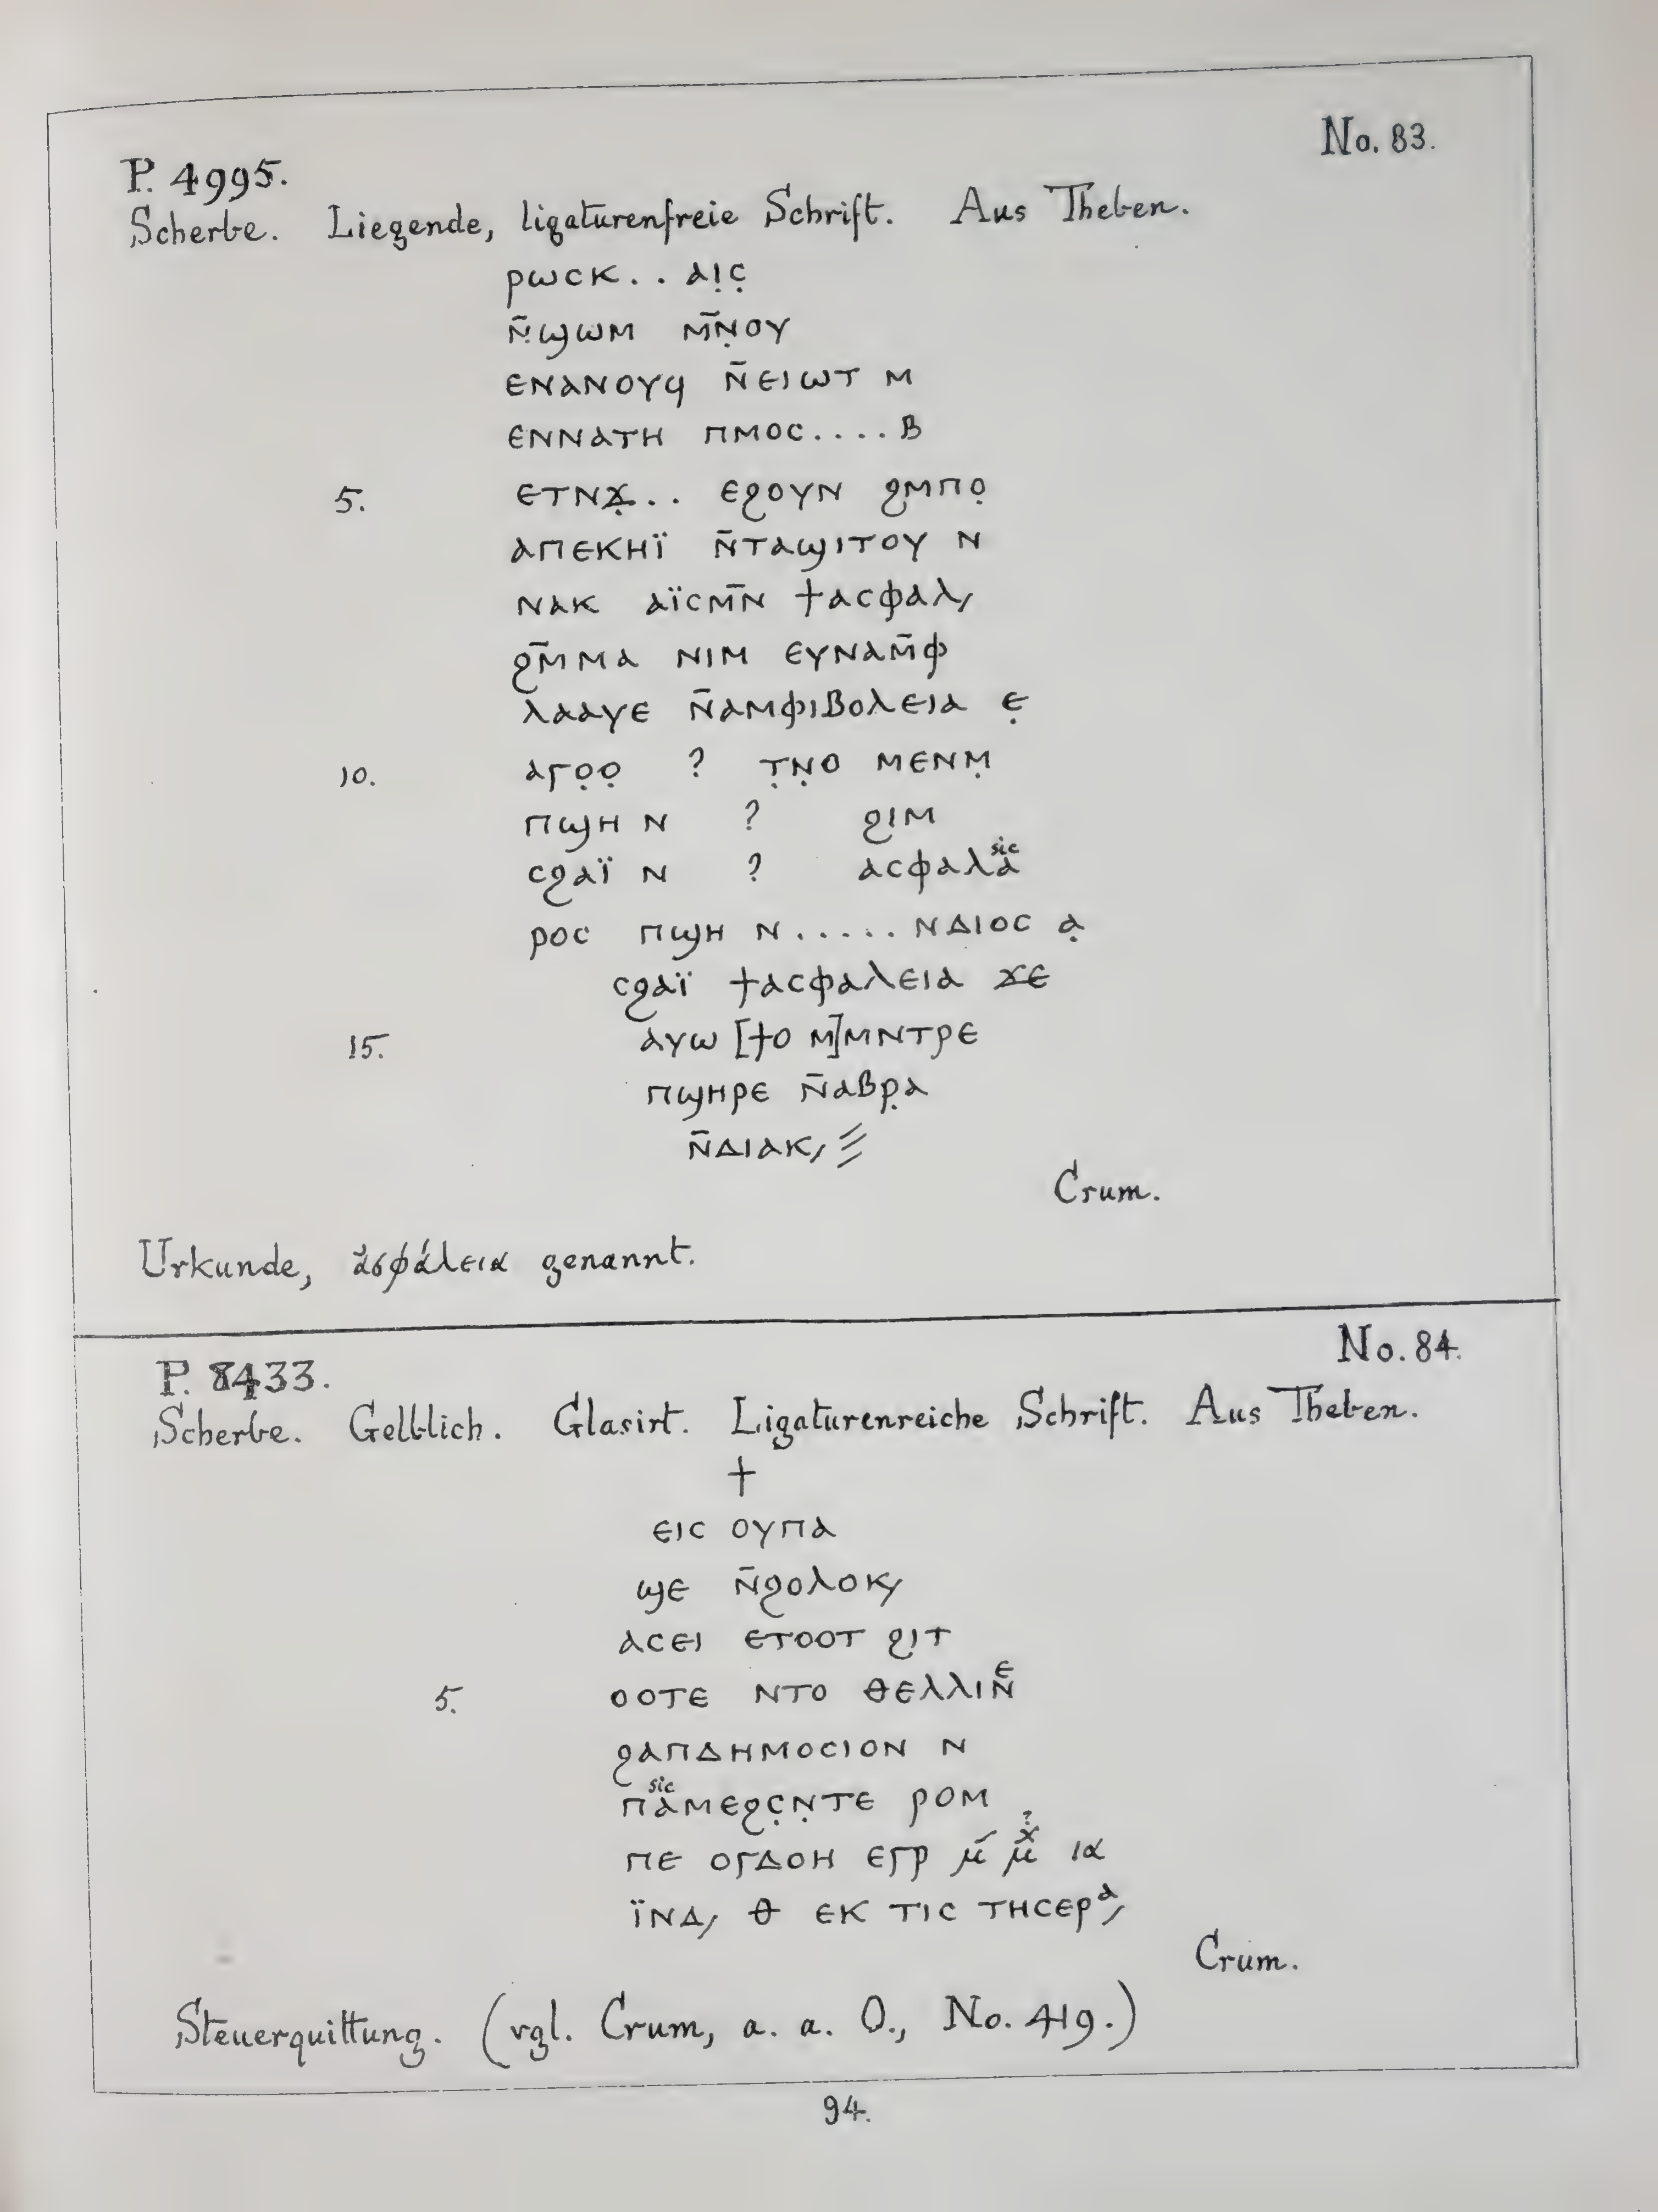 No. 83.
P. 4995.
Scherbe. Liegende, ligaturenfreie Schrift. Aus Theben.
ⲣⲱⲥⲕ . . ⲁⲓ̣ⲥ̣
ⲛ̄ϣⲱⲙ ⲙ̄ⲛ̣̄ⲟⲩ
ⲉⲛⲁⲛⲟⲩϥ ⲛ̄ⲉⲓⲱⲧ ⲙ
ⲉⲛⲛⲁⲧⲏ ⲡⲙⲟⲥ . . . . ⲃ
5. ⲉⲧⲛϫ̣ . . ⲉϩⲟⲩⲛ ϩⲙⲡⲟ̣
ⲁⲡⲉⲕⲏⲓ̈ ⲛ̄ⲧⲁϣⲓⲧⲟⲩ ⲛ
ⲛⲁⲕ ⲁⲓ̈ⲥⲙ̄ⲛ ϯⲁⲥⲫⲁⲗ/
ϩⲙ̄ⲙⲁ ⲛⲓⲙ ⲉⲩⲛⲁⲙ̄ⲫ
ⲗⲁⲁⲩⲉ ⲛ̄ⲁⲙⲫⲓⲃⲟⲗⲉⲓⲁ ⲉ̣
10. ⲁⲅⲟ̣ⲟ̣ ? ⲧ̣ⲛ̣ⲟ ⲙⲉⲛⲙ̣
ⲡϣⲏ ⲛ ? ϩⲓⲙ
ⲥϩⲁⲓ̈ ⲛ ? ⲁⲥⲫⲁⲗⲁ sic
ⲣⲟⲥ ⲡϣⲏ ⲛ . . . . . ⲛⲇⲓⲟⲥ ⲁ̣
ⲥϩⲁⲓ̈ ϯⲁⲥⲫⲁⲗⲉⲓⲁ ϫⲉ
15. ⲁⲩⲱ [ϯⲟ ⲙ]ⲙⲛⲧⲣⲉ
ⲡϣⲏⲣⲉ ⲛ̄ⲁⲃⲣ̣ⲁ
ⲛ̄ⲇⲓⲁⲕ/ ⳿⳿⳿
Crum.
Urkunde, ἀσφάλεια genannt.
No. 84.
P. 8433.
Scherbe. Gelblich. Glasirt. Ligaturenreiche Schrift. Aus Theben.
†
ⲉⲓⲥ ⲟⲩⲡⲁ
ϣⲉ ⲛ̄ϩⲟⲗⲟⲕ/
ⲁⲥⲉⲓ ⲉⲧⲟⲟⲧ ϩⲓⲧ
5. ⲟⲟⲧⲉ ⲛⲧⲟ ⲑⲉⲗⲗⲓⲛ̄ⲉ
ϩⲁⲡⲇⲏⲙⲟⲥⲓⲟⲛ ⲛ
ⲡⲁ sic ⲙⲉϩⲥ̣ⲛ̣ⲧⲉ ⲣⲟⲙ
ⲡⲉ ⲟⲅⲇⲟⲏ ⲉⲅⲣ μ́ μχ ? ια
ⲓ̈ⲛⲇ/ ⲑ ⲉⲕ ⲧⲓⲥ ⲧⲏⲥⲉⲣⲁ/
Crum.
Steuerquittung. (vgl. Crum, a. a. O., No. 419.)
94.